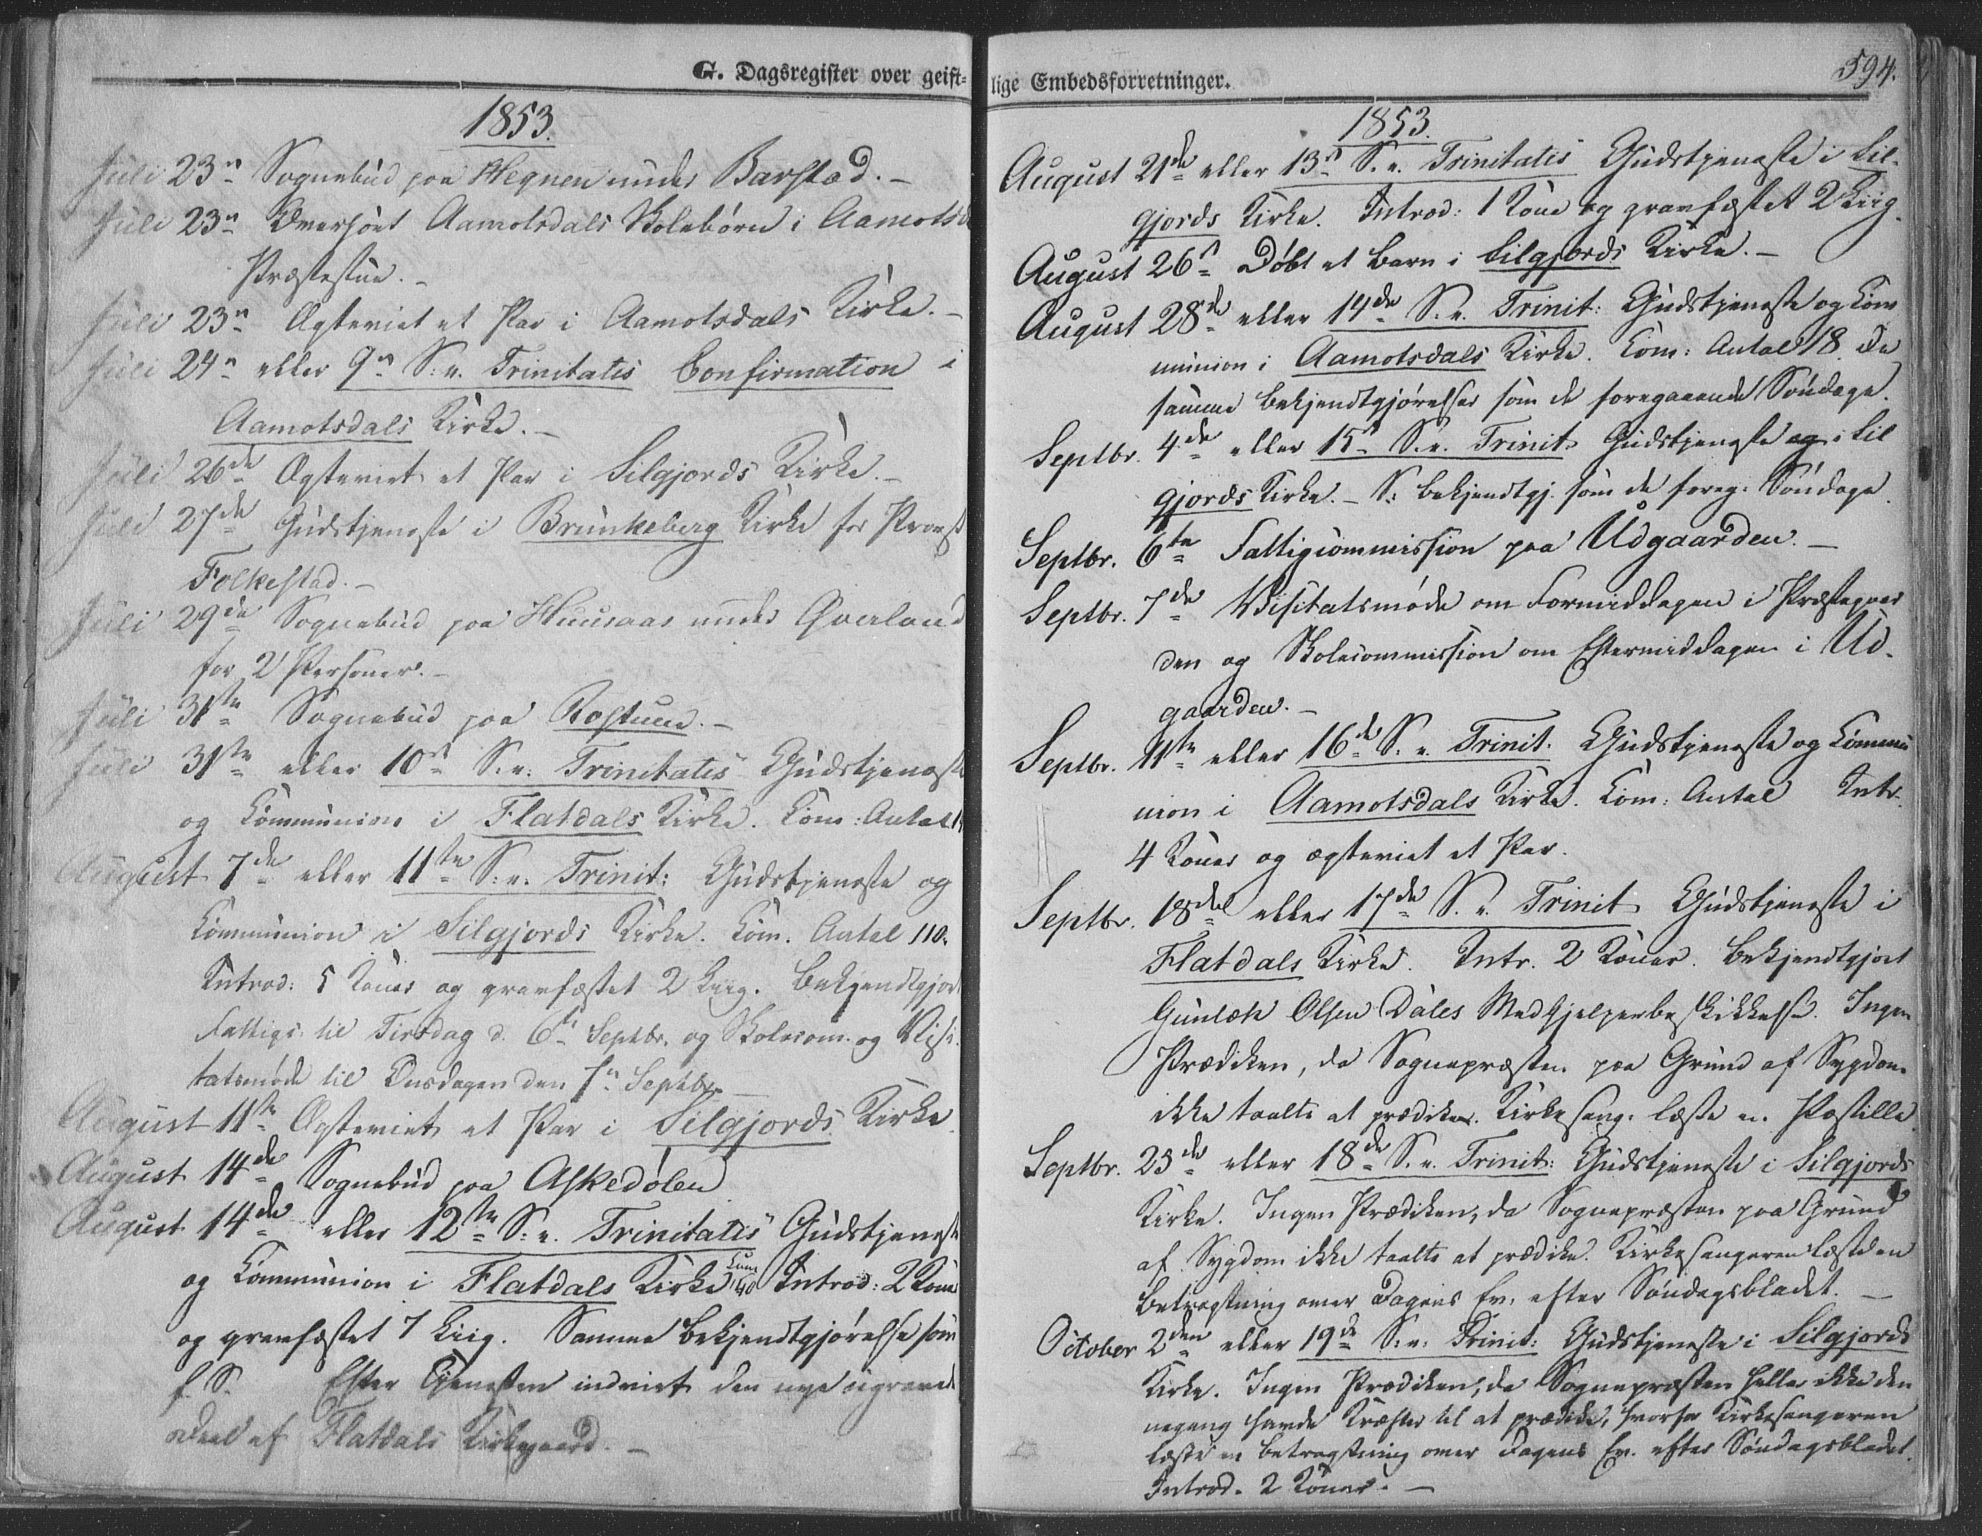 G. Dagsregister over geist-
1853.
Juli 23n Sognebud paa Hegnen under Barstad. -
Juli 23n Overhørt Aamotsdals Skolebørn i Aamotsd
Præstestue. -
Juli 23n Ægteviet et Par i Aamotsdals Kirke. -
Juli 24n eller 9n S. e. Trinitatis Confirmation i
Aamotsdals Kirke. -
Juli 26de Ægteviet et Par i Silgjords Kirke. -
Juli 27de Gudstjeneste i Brunkeberg Kirke for Provst
Folkestad. -
Juli 29de Sognebud paa Huusaas under Øverland
for 2 Personer. -
Juli 31te Sognebud paa Rostuen. -
Juli 31te eller 10n S. e. Trinitatis Gudstjeneste
og Communion i Flatdals Kirke. Com: Antal
August 7de eller 11te S. e. Trinit: Gudstjeneste og
Communion i Silgjords Kirke. Com. Antal 110.
Introd: 5 Koner og gravfæstet 2 Liig. Bekjendtgjort
Fattigc. til Tirsdag d. 6te Septbr. og Skolecom. og Visi-
tatsmøde til Onsdagen den 7n Septbr. -
August 11te Ægteviet et Par i Silgjords Kirke.
August 14de Sognebud paa Askedølen
August 14de eller 12te S. e. Trinitatis Gudstjeneste
og Communion i Flatdals Kirke Com 40 Introd: 2 Koner
og gravfæstet 7 Liig. Samme Bekjendtgjørelse som
f. S. Efter Tjenesten indviet den nye ugravede
Deel af Flatdals Kirkegaard. -
lige Embedsforretninger.
594.
1853.
August 21de eller 13n S. e. Trinitatis Gudstjeneste i Sil-
gjords Kirke. Introd: 1 Kone og gravfæstet 2 Liig.
August 26n Døbt et Barn i Silgjords Kirke. -
August 28de eller 14de S. e. Trinit: Gudstjeneste og Com
munion i Aamotsdals Kirke. Com: Antal 18. De
samme Bekjendtgjørelser som de foregaaende Søndage.
Septbr. 4de eller 15n S. e. Trinit. Gudstjeneste og i Sil
gjords Kirke. - S: Bekjendtgj. som de foreg: Søndage
Septbr. 6te Fattigcommission paa Udgaarden. -
Septbr. 7de Visitatsmøde om Formiddagen i Præstegaar
den og Skolecommission om Eftermiddagen i Ud-
gaarden. -
Septbr. 11te eller 16de S. e. Trinit. Gudstjeneste og Commu
nion i Aamotsdals Kirke. Com: Antal Intr.
4 Koner og ægteviet et Par.
Septbr. 18de eller 17de S. e. Trinit Gudstjeneste i
Flatdals Kirke. Intr. 2 Koner. Bekjendtgjort
Gunlek Olsen Dales Medhjelperbeskikkelse. Ingen
Prædiken, da Sognepræsten paa Grund af Sygdom
ikke taalte at prædike. Kirkesang. læste en Postille
Septbr. 25de eller 18de S. e. Trinit: Gudstjeneste i Silgjords
Kirke. Ingen Prædiken, da Sognepræsten paa Grund
af Sygdom ikke taalte at prædike. Kirkesangeren læste en
Betragtning over Dagens Ev. efter Søndagsbladet. -
October 2den eller 19de S. e. Trinit: Gudstjeneste i Silgjords
Kirke. Ingen Prædiken, da Sognepræsten heller ikke den
negang havde Kræfter til at prædike, hvorfor Kirkesangeren
læste en Betragtning over Dagens Ev. efter Søndagsbladet.
Introd. 2 Koner. -